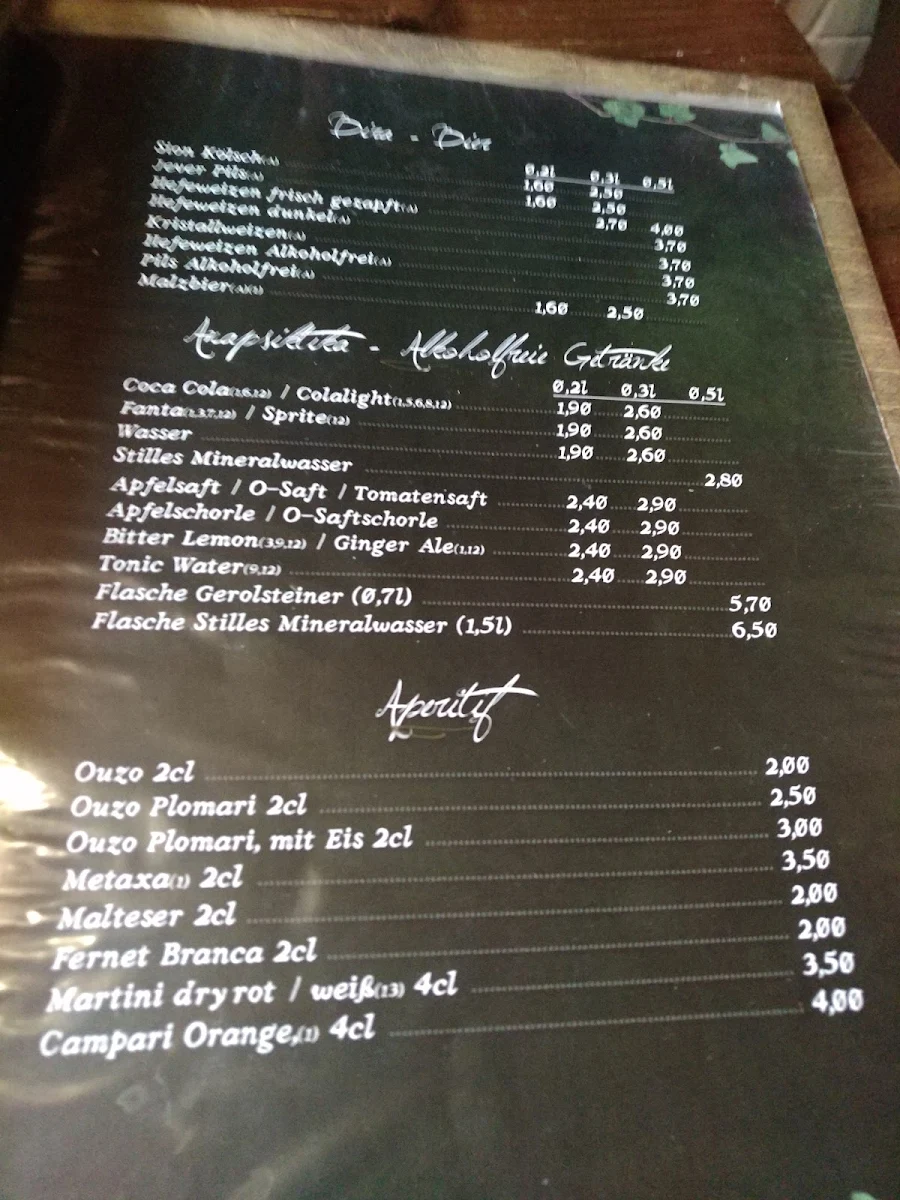 Bira - Bier
0,2l 0,3l 0,5l
Sion Kölsch(A) 1,60 2,50
Jever Pils(A) 1,60 2,50
Hefeweizen frisch gezapft(A) 2,70 4,00
Hefeweizen dunkel(A) 3,70
Kristallweizen(A) 3,70
Hefeweizen Alkoholfrei(A) 3,70
Pils Alkoholfrei(A) 3,70
Malzbier 1,60 2,50
Anapsiktika - Alkoholfreie Getränke
0,2l 0,3l 0,5l
Coca Cola(1,6,12) / Colalight(1,5,6,8,12) 1,90 2,60
Fanta(1,3,7,12) / Sprite(12) 1,90 2,60
Wasser 1,90 2,60
Stilles Mineralwasser 2,80
Apfelsaft / O-Saft / Tomatensaft 2,40 2,90
Apfelschorle / O-Saftschorle 2,40 2,90
Bitter Lemon(3,9,12) / Ginger Ale(1,12) 2,40 2,90
Tonic Water(9,12) 2,40 2,90
Flasche Gerolsteiner (0,7l) 5,70
Flasche Stilles Mineralwasser (1,5l) 6,50
Aperitif
Ouzo 2cl 2,00
Ouzo Plomari 2cl 2,50
Ouzo Plomari, mit Eis 2cl 3,00
Metaxa(1) 2cl 3,50
Malteser 2cl 2,00
Fernet Branca 2cl 2,00
Martini dry rot / weiß(13) 4cl 3,50
Campari Orange,(1) 4cl 4,00